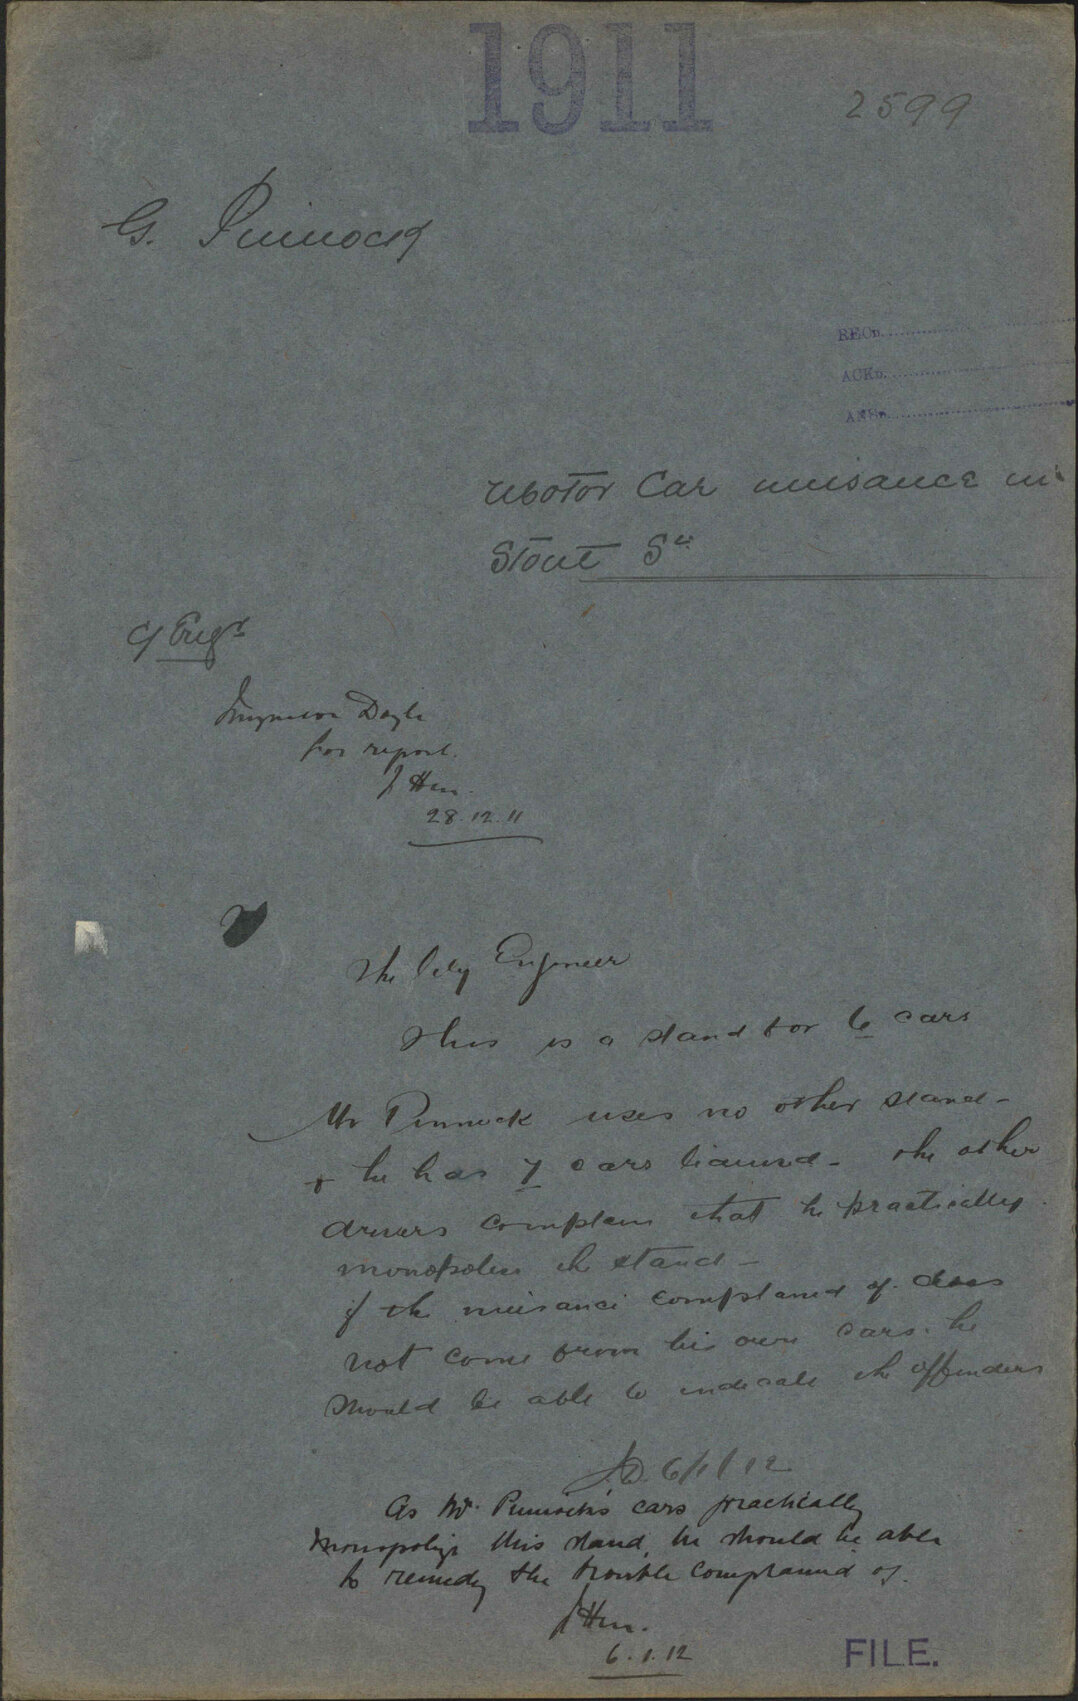 1911
2599
G. Pinnock
RECD.
ACKD.
ANSD.
Motor Car nuisance in
Stout St
C/ Engr
Inspector Doyle
for report.
28.12.11
The City Engineer
This is a stand for 6 cars
Mr Pinnock uses no other stand -
+ he has 7 cars licensed - the other
drivers complain that he practically
monopolises the stand -
if the nuisance complained of does
not come from his own cars he
should be able to indicate the offenders
J.D. 6/1/12
As Mr. Pinnock's cars practically
monopolize this stand, he should be able
to remedy the trouble complained of.
6.1.12
FILE.